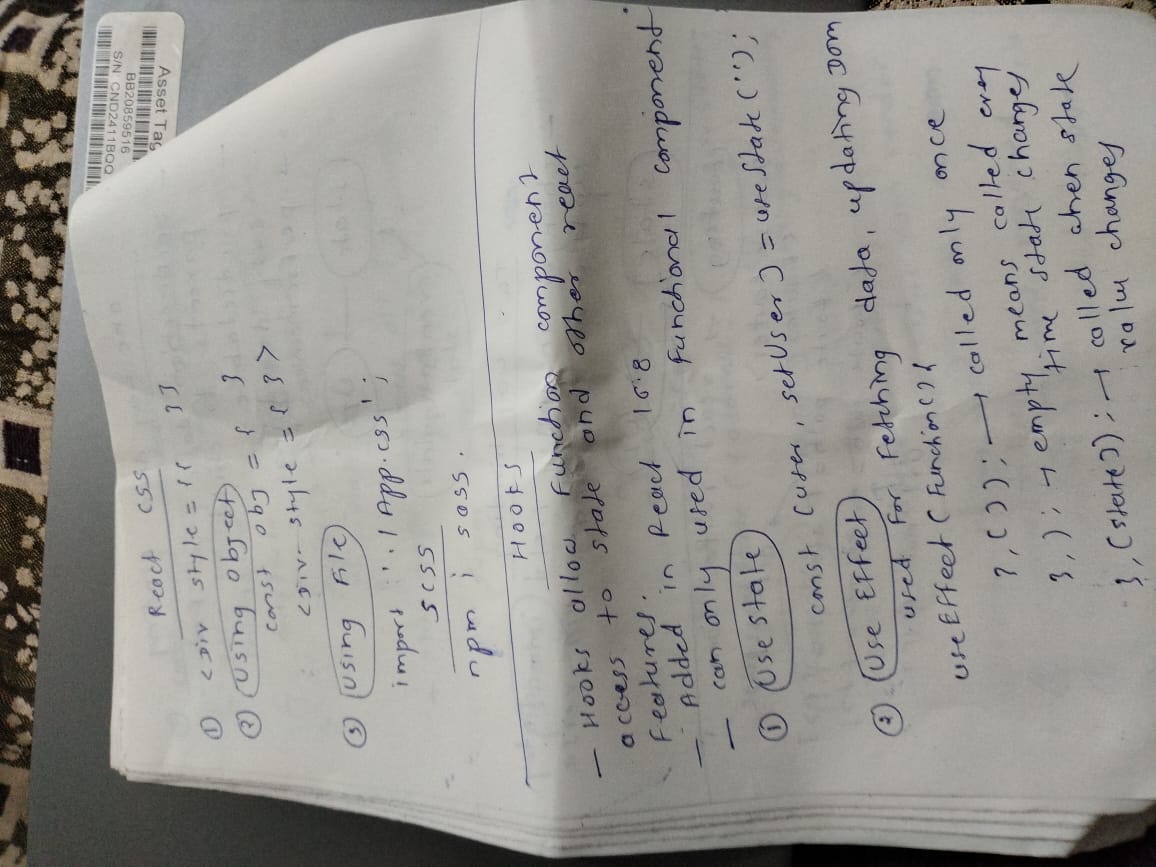 Asset Tag
BB20859516
S/N CND2411BQQ
React CSS
① <div style = {{ }}
② Using object
const obj = { }
<div style = { }>
③ Using File
import './App.css';
SCSS
npm i sass.
Hooks
- Hooks allow function component
access to state and other react
features.
- Added in React 16.8
- can only used in functional component.
① Use State
const [user, setUser] = useState('');
② Use Effect
used for fetching data, updating Dom
useEffect(function(){
}, []); → called only once
}, ); → empty means called every
time state changes
}, [state]); → called when state
value changes